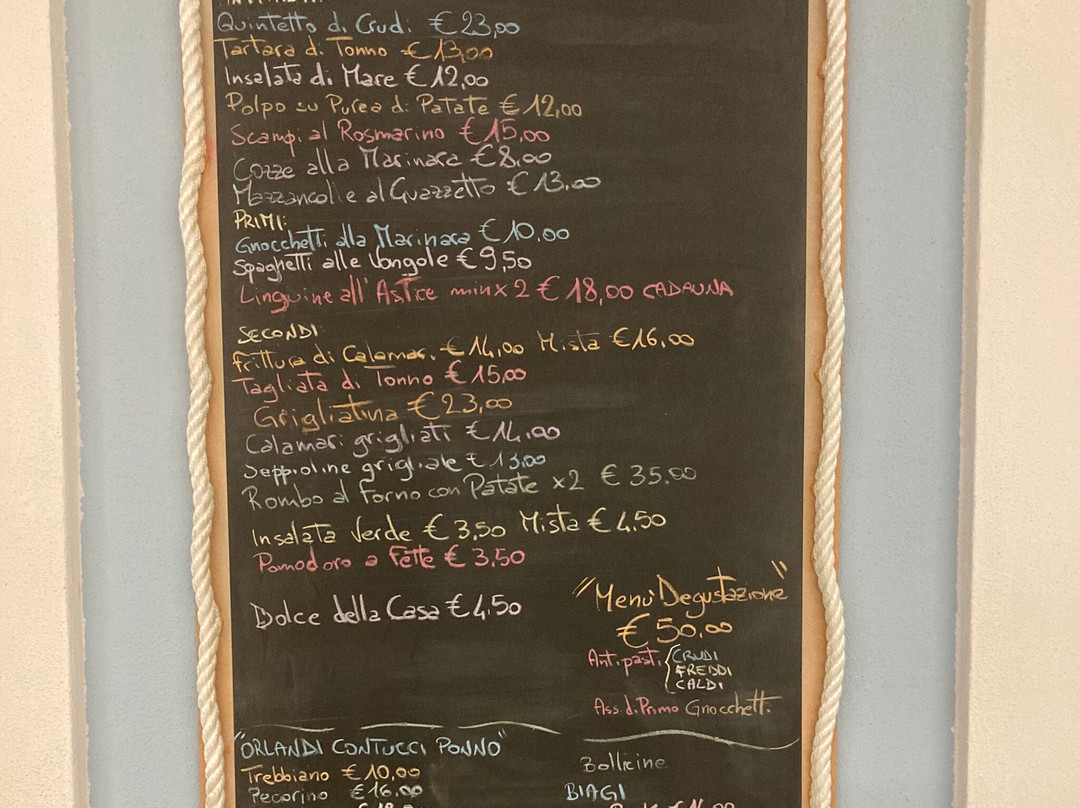 Quintetto di Crudi € 23,00
Tartara di Tonno € 13,00
Insalata di Mare € 12,00
Polpo su Purea di Patate € 12,00
Scampi al Rosmarino € 15,00
Cozze alla Marinara € 8,00
Mazzancolle al Guazzetto € 13,00
PRIMI:
Gnocchetti alla Marinara € 10,00
Spaghetti alle Vongole € 9,50
Linguine all'Astice min x 2 € 18,00 CADAUNA
SECONDI
Frittura di Calamari € 14,00 Mista € 16,00
Tagliata di Tonno € 15,00
Grigliatina € 23,00
Calamari grigliati € 14,00
Seppioline grigliate € 13,00
Rombo al Forno con Patate x2 € 35,00
Insalata Verde € 3,50 Mista € 4,50
Pomodoro a Fette € 3,50
Dolce della Casa € 4,50
"Menù Degustazione"
€ 50,00
Antipasti { CRUDI
FREDDI
CALDI
Ass. di Primo Gnocchetti
"ORLANDI CONTUCCI PONNO"
Trebbiano € 10,00
Pecorino € 16,00
Bollicine
BIAGI